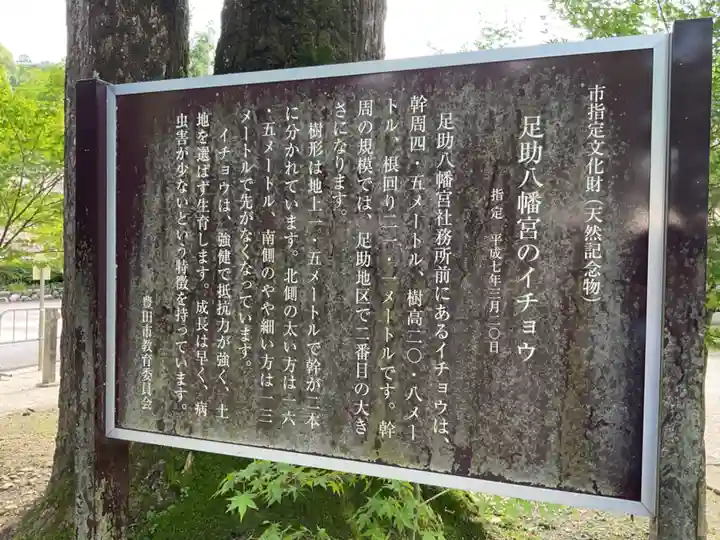 市指定文化財(天然記念物)
足助八幡宮のイチョウ
指定 平成七年三月二〇日
足助八幡宮社務所前にあるイチョウは、
幹周四・五メートル、樹高二〇・八メー
トル、根回り二一・一メートルです。幹
周の規模では、足助地区で二番目の大き
さになります。
樹形は地上二・五メートルで幹が二本
に分かれています。北側の太い方は一六
・五メートル、南側のやや細い方は一三
メートルで先がなくなっています。
イチョウは、強健で抵抗力が強く、土
地を選ばず生育します。成長は早く、病
虫害が少ないという特徴を持っています。
豊田市教育委員会